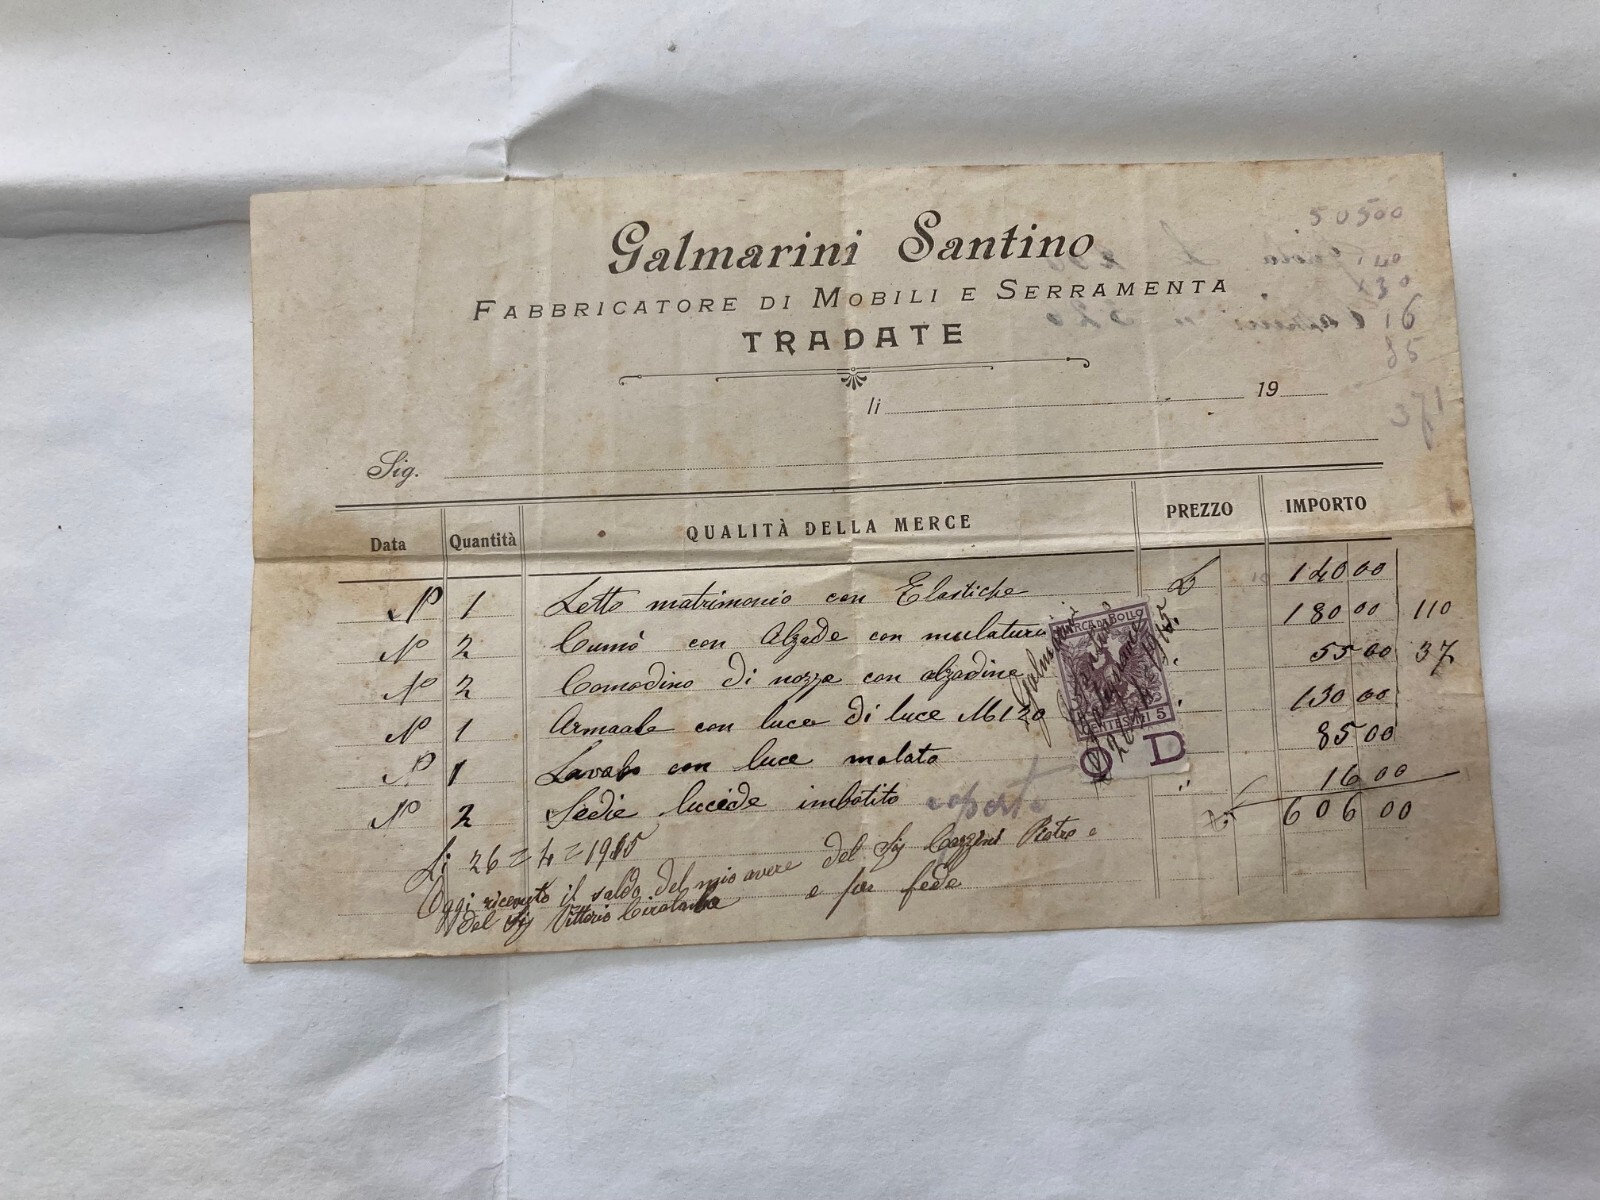 Galmarini Santino
FABBRICATORE DI MOBILI E SERRAMENTA
TRADATE
50500
40
30
16
85
371
li 19
Sig.
Data Quantità QUALITÀ DELLA MERCE PREZZO IMPORTO
N 1 Letto matrimonio con Elastiche L 140 00
N 2 Cumò con Alzade con mulature 180 00 110
N 2 Comodino di nozze con alzadine 55 00 37
N 1 Armaale con luce di luce M 1 20 130 00
N 1 Lavabo con luce molato 85 00
N 2 Sedie lucide imbotito 16 00
606 00
MARCA DA BOLLO
CENTESIMI 5
O D
Li 26 = 4 = 1915
Oggi ricevuto il saldo del mio avere del Sig Pietro e
del Sig Vittorio e per fede